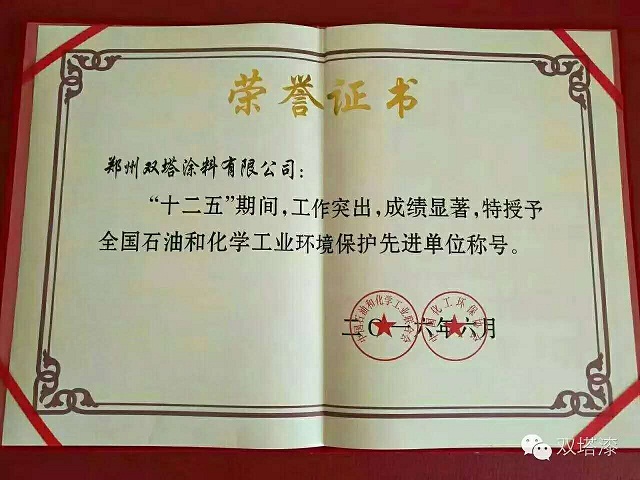 荣誉证书
郑州双塔涂料有限公司：
“十二五”期间，工作突出，成绩显著，特授予
全国石油和化学工业环境保护先进单位称号。
中国石油和化学工业联合会
中国化工环保协会
二〇一六年六月
双塔漆